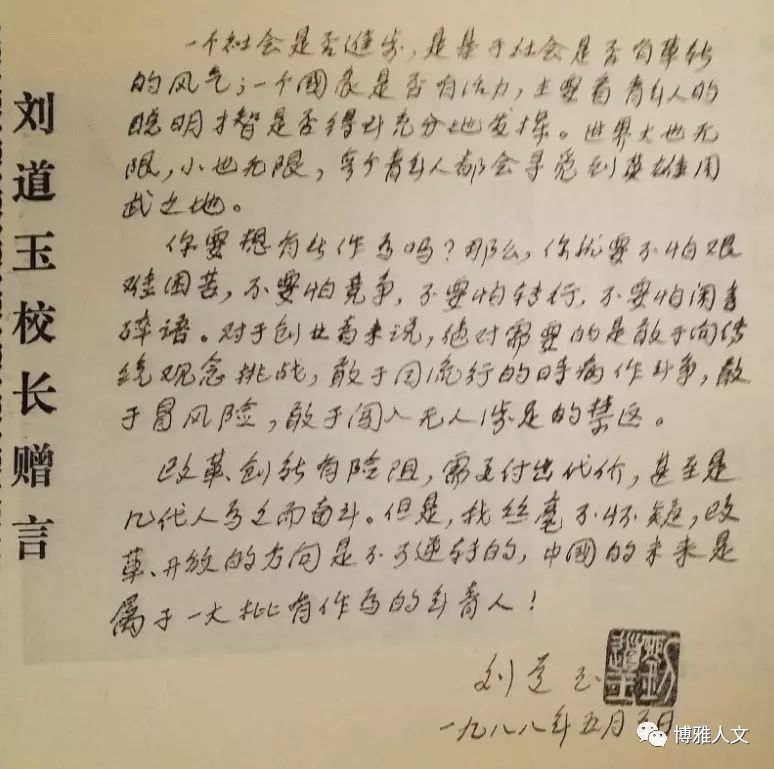 刘道玉校长赠言
一个社会是否进步，是基于社会是否有革新
的风气；一个國家是否有活力，主要看青年人的
聪明才智是否得到充分地发挥。世界大也无
限，小也无限，每个青年人都会寻觅到英雄用
武之地。
你要想有所作为吗？那么，你就要不怕艰
难困苦，不要怕竞争，不要怕转行，不要怕闲言
碎语。对于创业者来说，绝对需要的是敢于向传
统观念挑战，敢于同流行的时病作斗争，敢
于冒风险，敢于闯入无人涉足的禁区。
改革、创新有险阻，需要付出代价，甚至是
几代人为之而奋斗。但是，我丝毫不怀疑，改
革、开放的方向是不可逆转的，中國的未来是
属于一大批有作为的年青人！
刘道玉
一九八八年五月 日
博雅人文